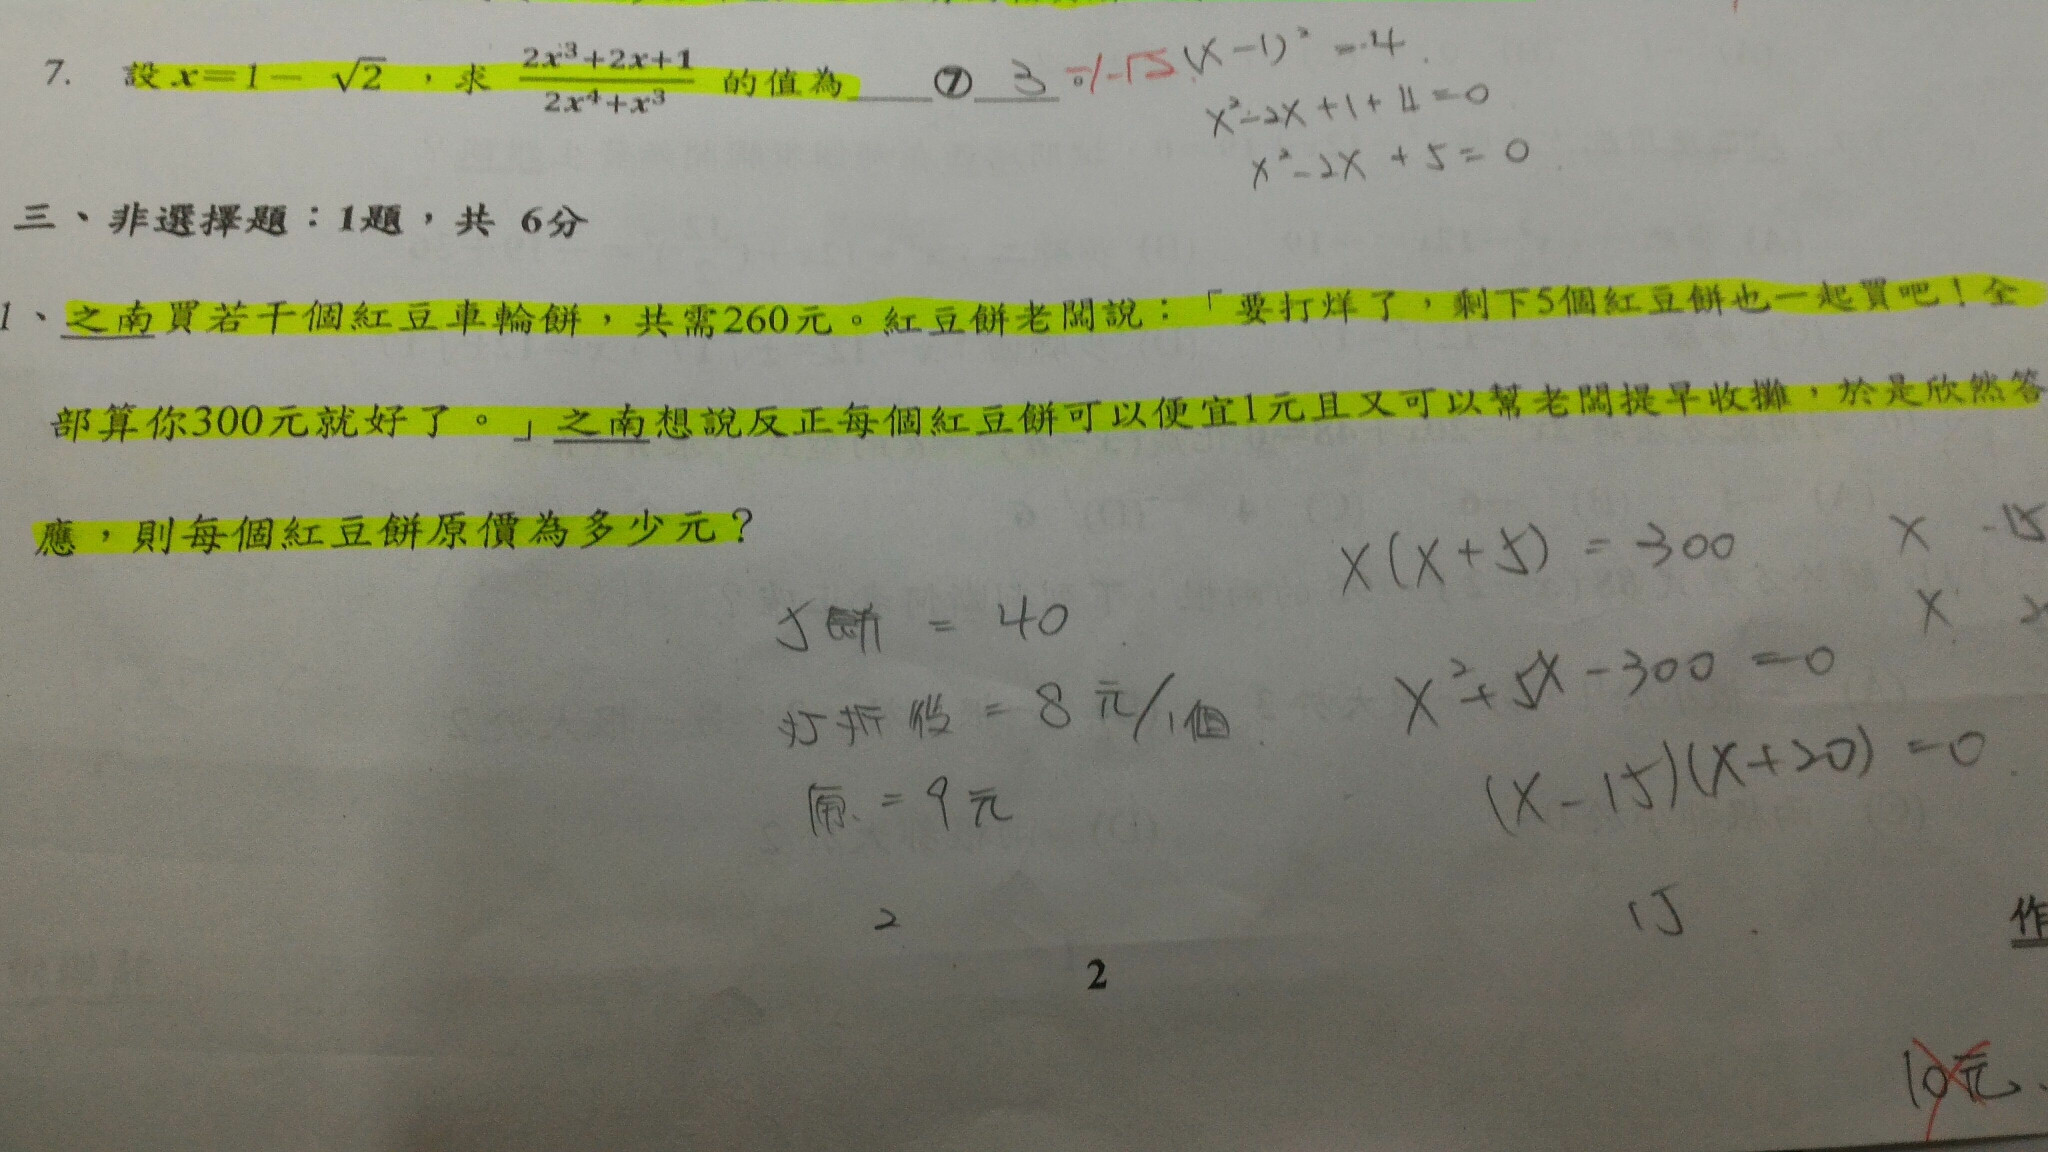 7. 設 x=1- √2 ,求 (2x³+2x+1)/(2x⁴+x³) 的值為____⑦ 3 。 -1-√2 (x-1)² = -4
x²-2x+1+4=0
x²-2x+5=0
三、非選擇題:1題,共 6分
1、之南買若干個紅豆車輪餅,共需260元。紅豆餅老闆說:「要打烊了,剩下5個紅豆餅也一起買吧!全
部算你300元就好了。」之南想說反正每個紅豆餅可以便宜1元且又可以幫老闆提早收攤,於是欣然答
應,則每個紅豆餅原價為多少元?
x(x+5) = 300
x -15
x 2
5餅 = 40
x²+5x-300=0
打折後 = 8元/1個
(x-15)(x+20)=0
原 = 9元
2
15
作
2
10元